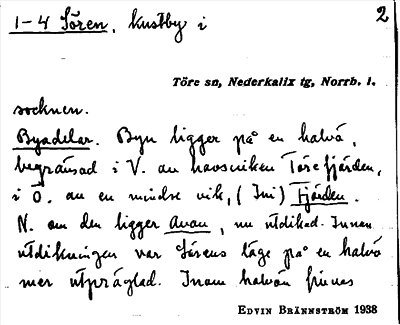 1-4 Sören, kustby i
2
Töre sn, Nederkalix tg, Norrb. l.
socknen.
Byadelar. Byn ligger på en halvö,
begränsad i V. av havsviken Törefjärden,
i Ö. av en mindre vik, (Ini) Fjärden.
N. om den ligger Avan, nu utdikad. Innan
utdikningen var Sörens läge på en halvö
mer utpräglad. Inom halvön finnes
EDVIN BRÄNNSTRÖM 1938